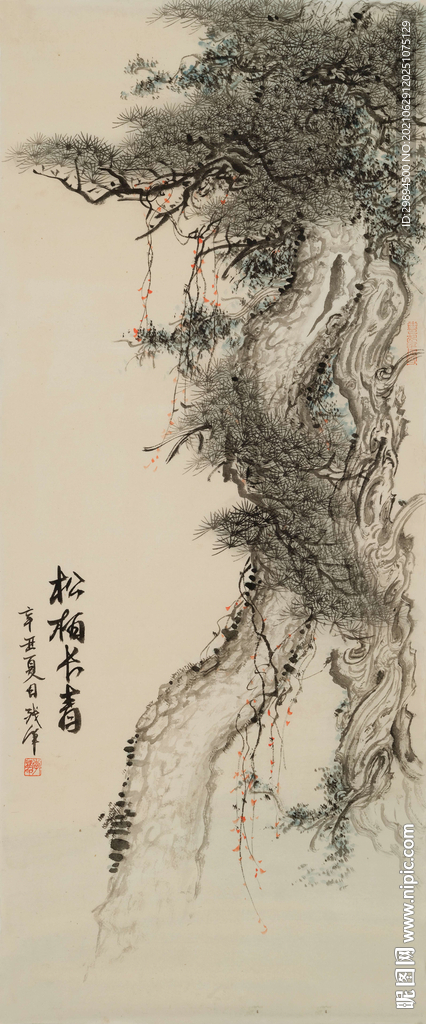 松柏长青
辛丑夏日
ID:29894500 NO:20210629120251075129
昵图网 www.nipic.com